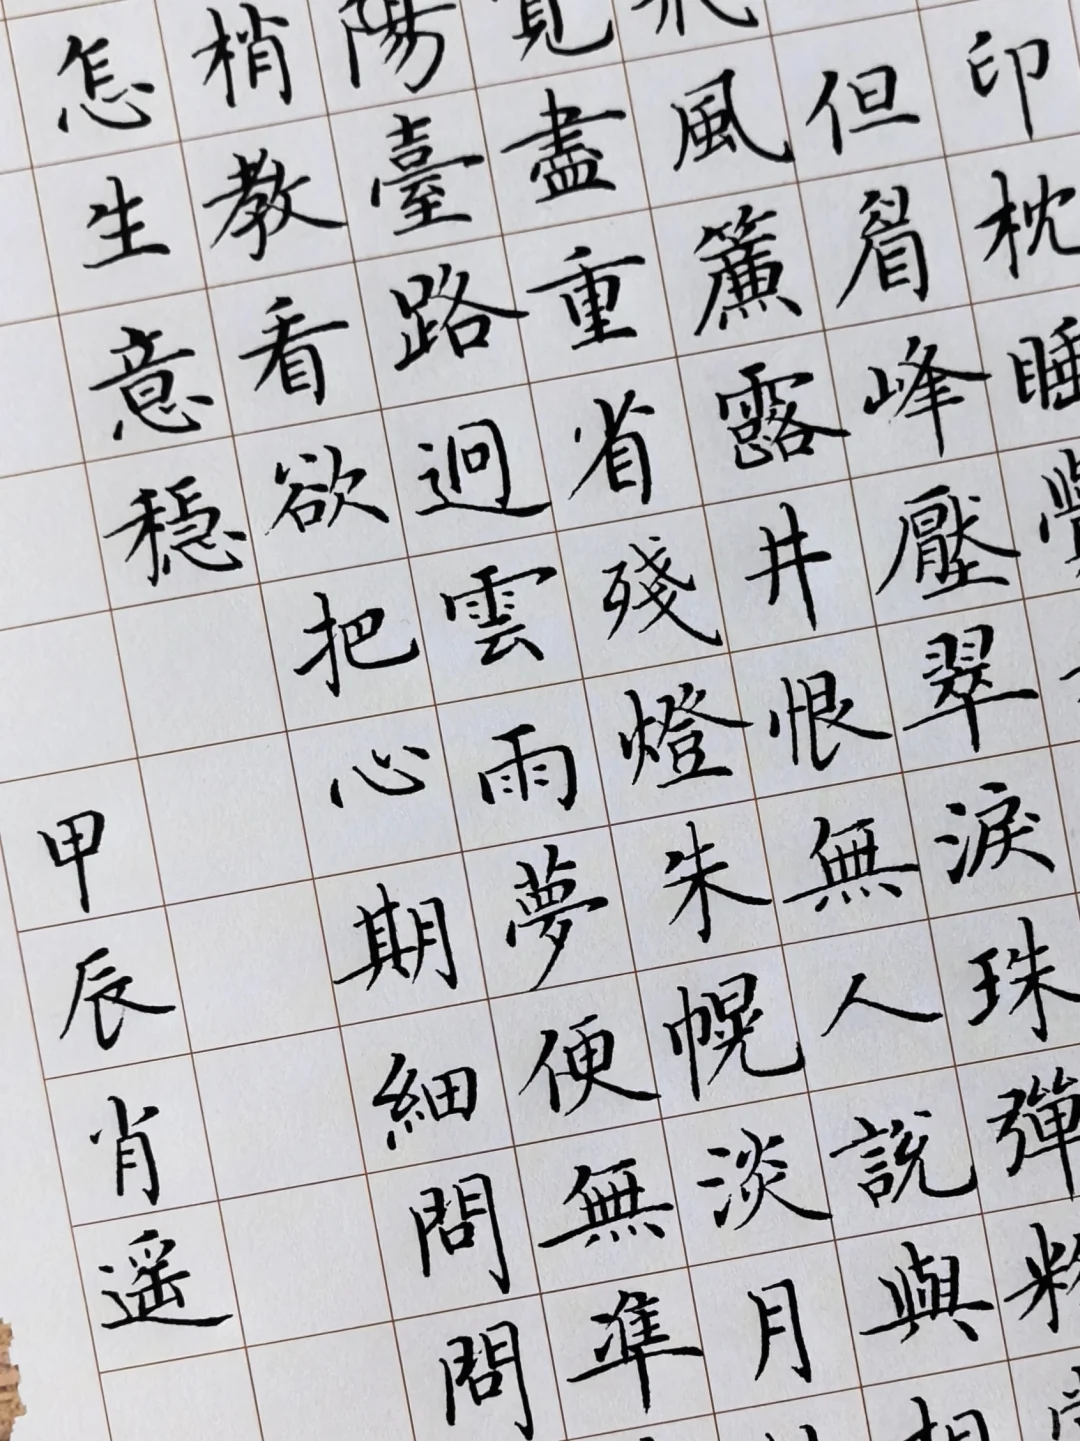 印枕睡覺
但眉峰壓翠淚珠彈粉
飛風簾露井恨無人說與相
寬盡重省殘燈朱幌淡月
陽臺路迥雲雨夢便無準
梢教看欲把心期細問問
怎生意穩
甲辰肖遥